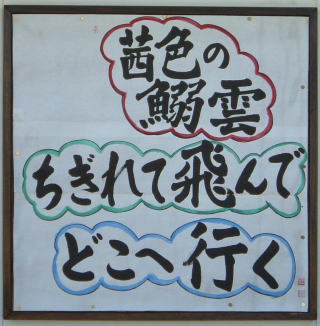 茜色の
鰯雲
ちぎれて飛んで
どこへ行く